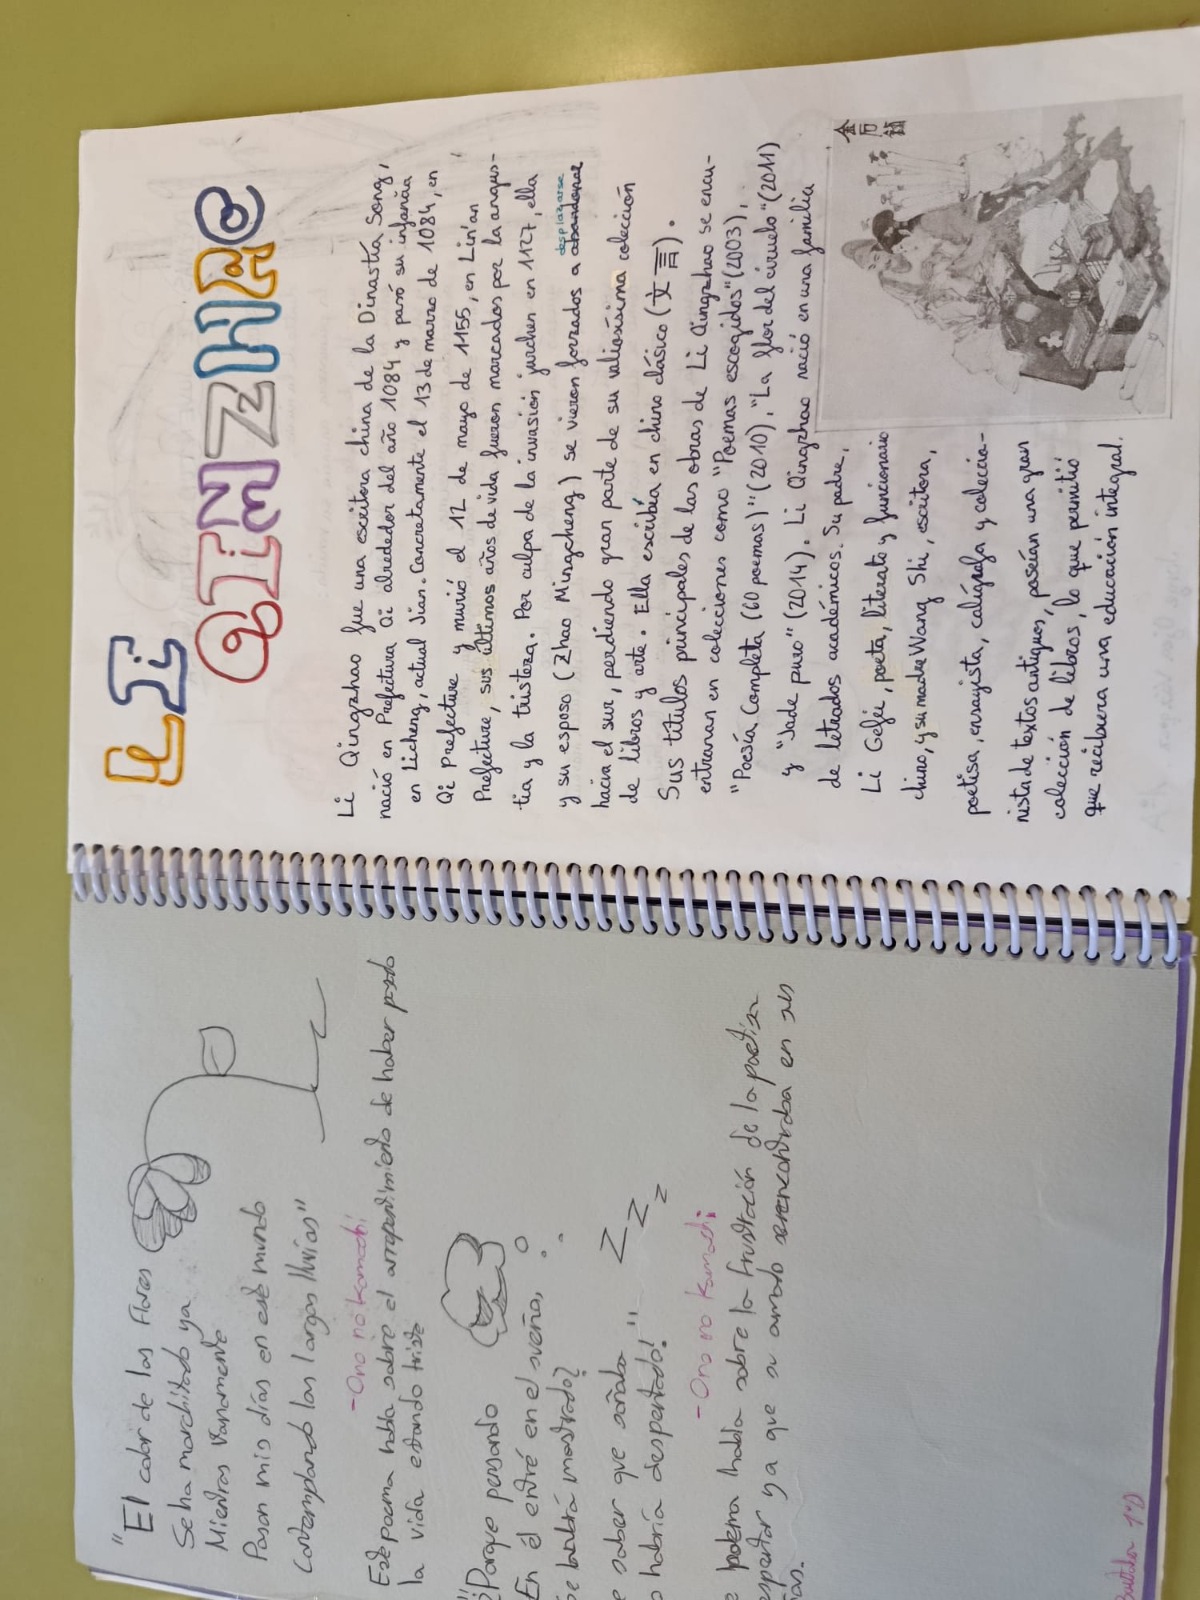 "El color de las Flores
Se ha marchitado ya
Mientras Vanamente
Pasan mis días en este mundo
Contemplando las largas lluvias"
-Ono no Komachi
Este poema habla sobre el arrepentimiento de haber pasado
la vida estando triste
"¿Porque pensando
En él entré en el sueño,
se habrá mostrado?
e saber que soñaba
o habría despertado!"
Z z z
-Ono no Komachi
poema habla sobre la frustración de la poetisa
espertar ya que su amado se rencontraba en sus
ñas.
1ºD
LI
QINZHAO
Li Qingzhao fue una escritora china de la Dinastía Song,
nació en Prefectura Qi alrededor del año 1084 y pasó su infancia
en Licheng, actual Jian. Concretamente el 13 de marzo de 1084, en
Qi Prefecture y murió el 12 de mayo de 1155, en Lin'an
Prefecture, sus últimos años de vida fueron marcados por la angus-
tia y la tristeza. Por culpa de la invasión jurchen en 1127, ella
y su esposo (Zhao Mingcheng) se vieron forzados a abandonar desplazarse
hacia el sur, perdiendo gran parte de su valiosísima colección
de libros y arte. Ella escribía en chino clásico (文言).
Sus títulos principales de las obras de Li Qingzhao se encu-
entranan en colecciones como "Poemas escogidos" (2003),
"Poesía Completa (60 poemas)" (2010), "La flor del ciruelo" (2011)
y "Jade puro" (2014). Li Qingzhao nació en una familia
de letrados académicos. Su padre,
Li Gefei, poeta, literato y funcionario
chino, y su madre Wang Shi, escritora,
poetisa, ensayista, calígrafa y coleccio-
nista de textos antiguos, poseían una gran
colección de libros, lo que permitió
que recibiera una educación integral.
金石